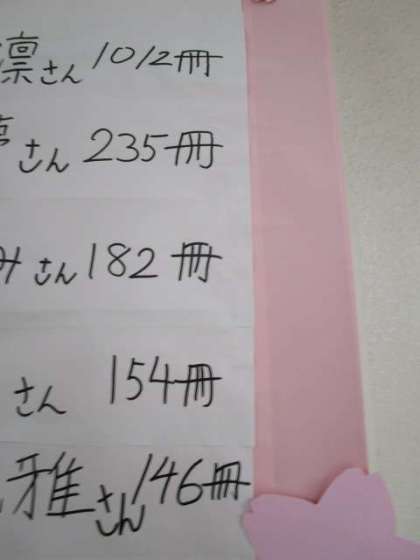 凛さん 1012冊
さん 235冊
みさん 182冊
さん 154冊
雅さん 146冊